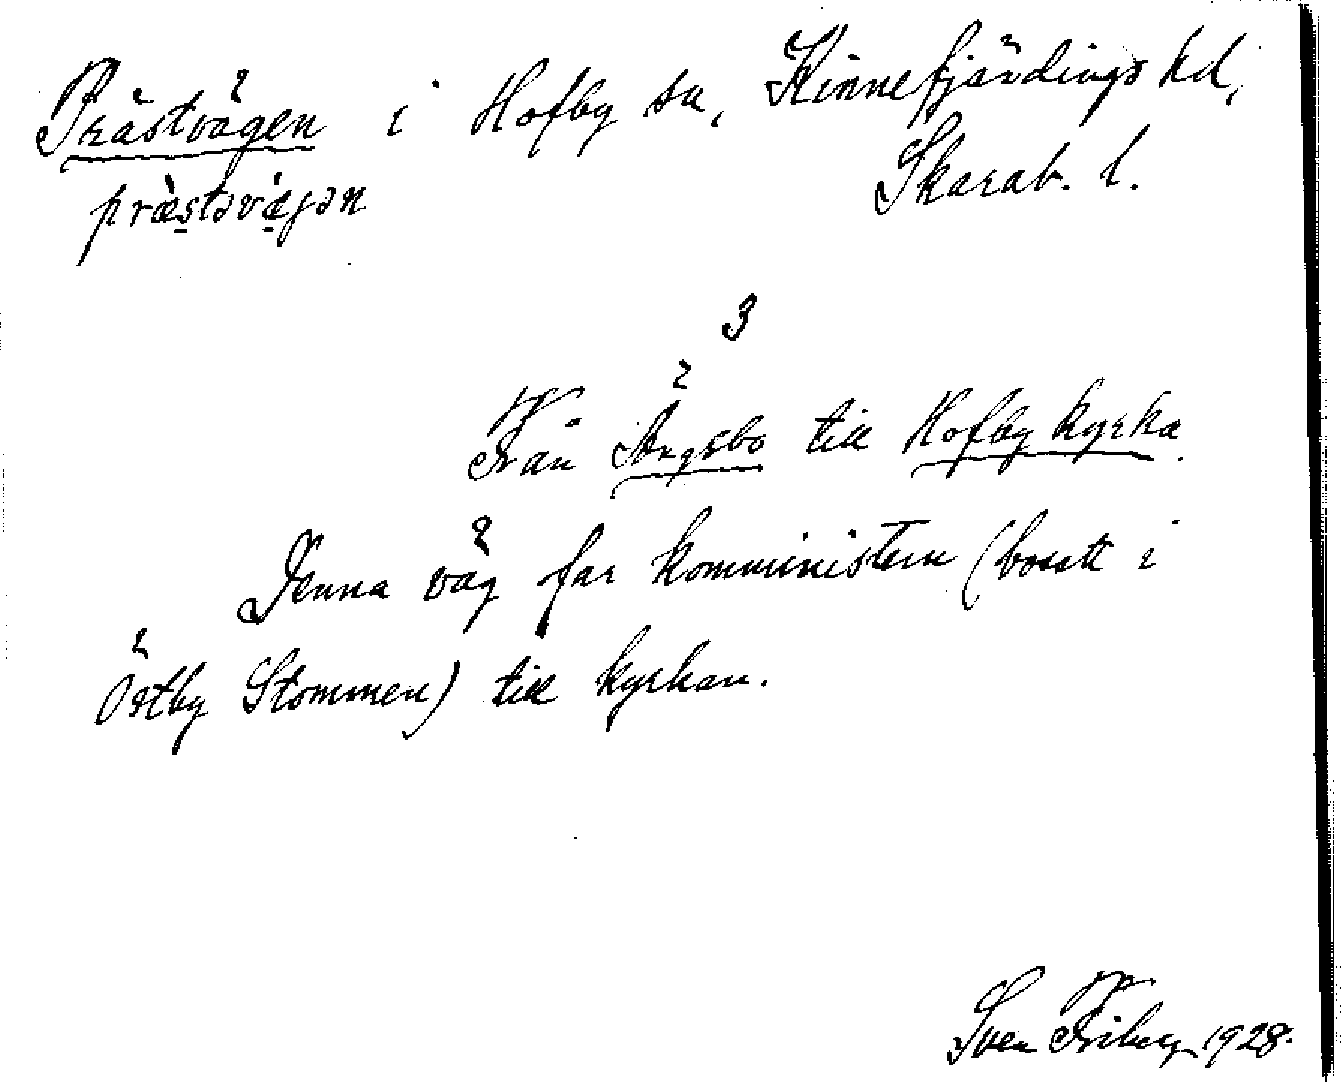 Prästvägen i Hofby sn, Kinnefjärdings hd,
Skarab. l.
præ̀stəvä́gən
3
Från Ängsbo till Hofby kyrka.
Denna väg far komministern (bosatt i
Östby Stommen) till kyrkan.
Sven Friberg 1928.